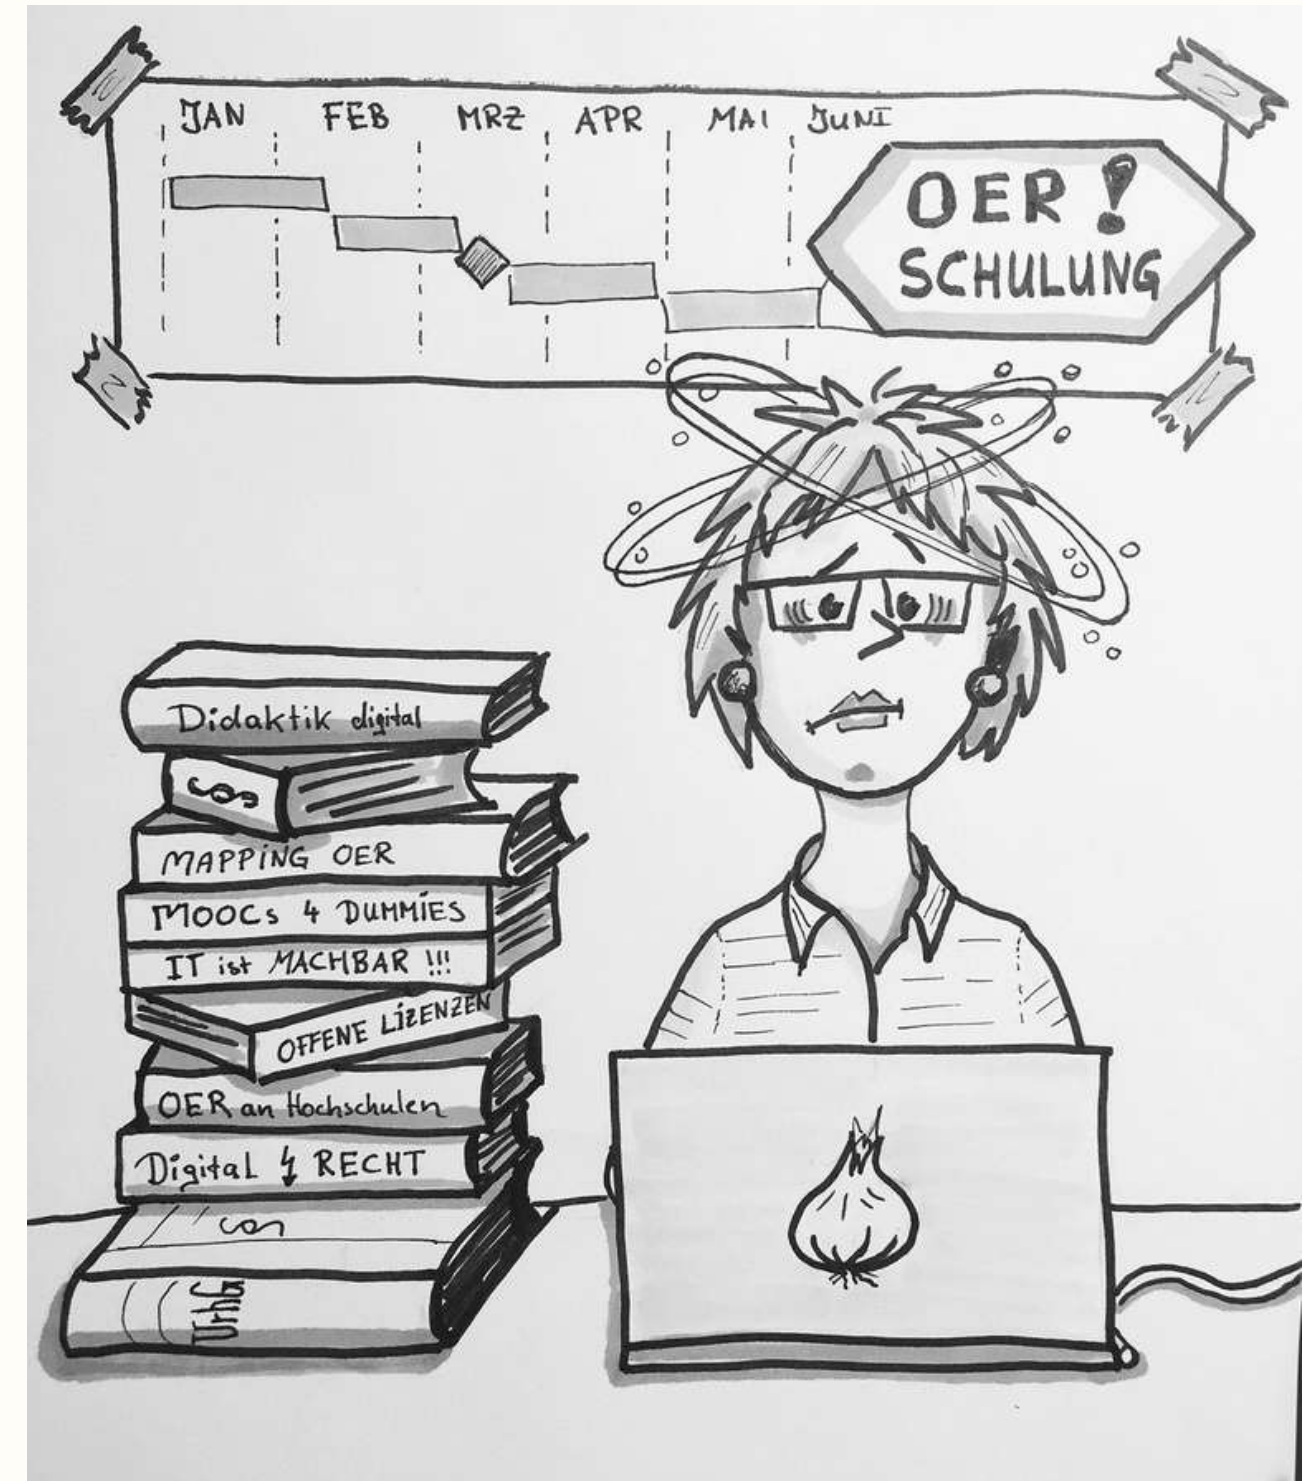 JAN FEB MRZ APR MAI JUNI
OER!
SCHULUNG
Didaktik digital
§
MAPPING OER
MOOCs 4 DUMMIES
IT ist MACHBAR !!!
OFFENE LIZENZEN
OER an Hochschulen
Digital ↯ RECHT
§
UrhG